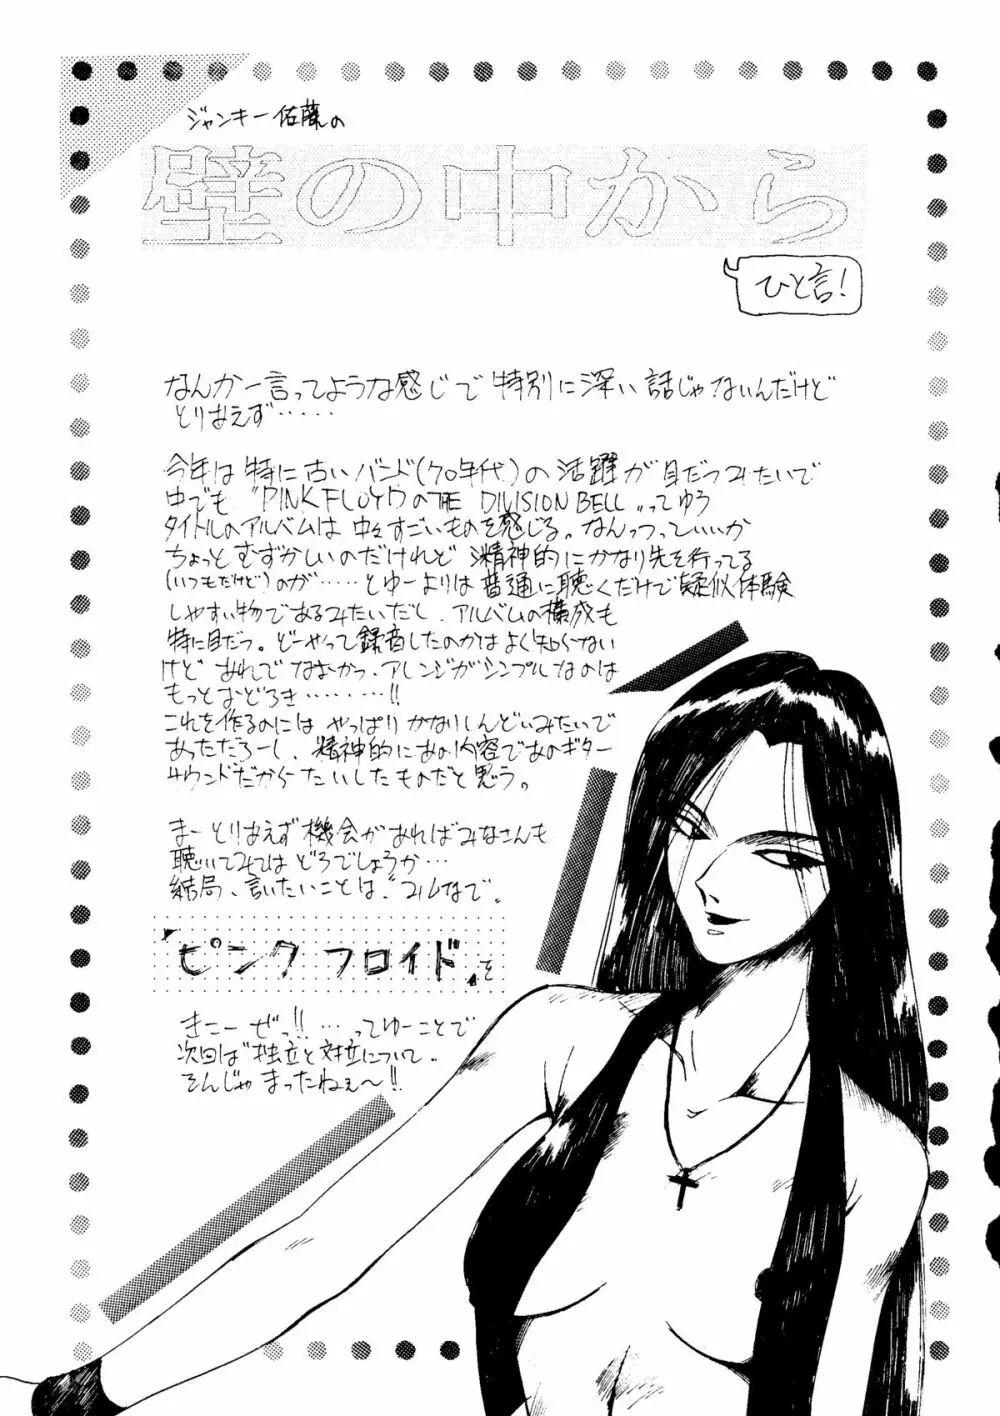 ジャンキー佐藤の
壁の中から
ひと言!
なんか一言ってような感じで特別に深い話じゃないんだけど
とりあえず‥‥‥
今年は特に古いバンド(70年代)の活躍が目だつみたいで
中でも〝PINK FLOYDのTHE DIVISION BELL〟ってゆう
タイトルのアルバムは中々すごいものを感じる。なんつっていいか
ちょっとむずかしいのだけれど 精神的にかなり先を行ってる
(いつもだけど)のが‥‥‥とゆーよりは普通に聴くだけで疑似体験
しやすい物であるみたいだし、アルバムの構成も
特に目だつ。どーやって録音したのかはよく知らない
けど あれでなおかつ、アレンジがシンプルなのは
もっとおどろき‥‥‥‥!!
これを作るのには やっぱり かなりしんどいみたいで
あっただろーし、精神的にあの内容であのギター
サウンドだからたいしたものだと思う。
まーとりあえず機会があればみなさんも
聴いてみては どうでしょうか‥
結局、言いたいことは、
『ピンク フロイド』を
きこーぜっ!! ‥‥ってゆーことで
次回は〝独立と対立について〟
そんじゃ まったねぇ〜!!